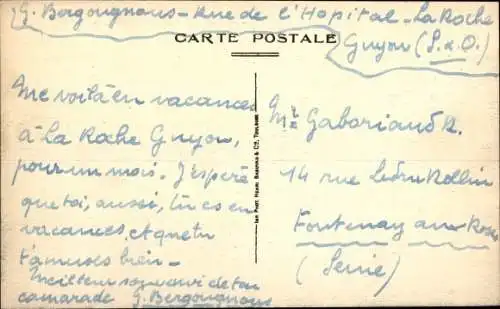 G. Bergougnous - Rue de l'Hôpital - La Roche
Guyon (S. & O.)
CARTE POSTALE
Me voilà en vacances
à La Roche Guyon,
pour un mois. J'espère
que toi, aussi, tu es en
vacances. et que tu
t'amuses bien -
Meilleur souvenir de ton
camarade G. Bergougnous
Mr Gaboriaud R.
14 rue Ledru Rollin
Fontenay aux Roses
(Seine)